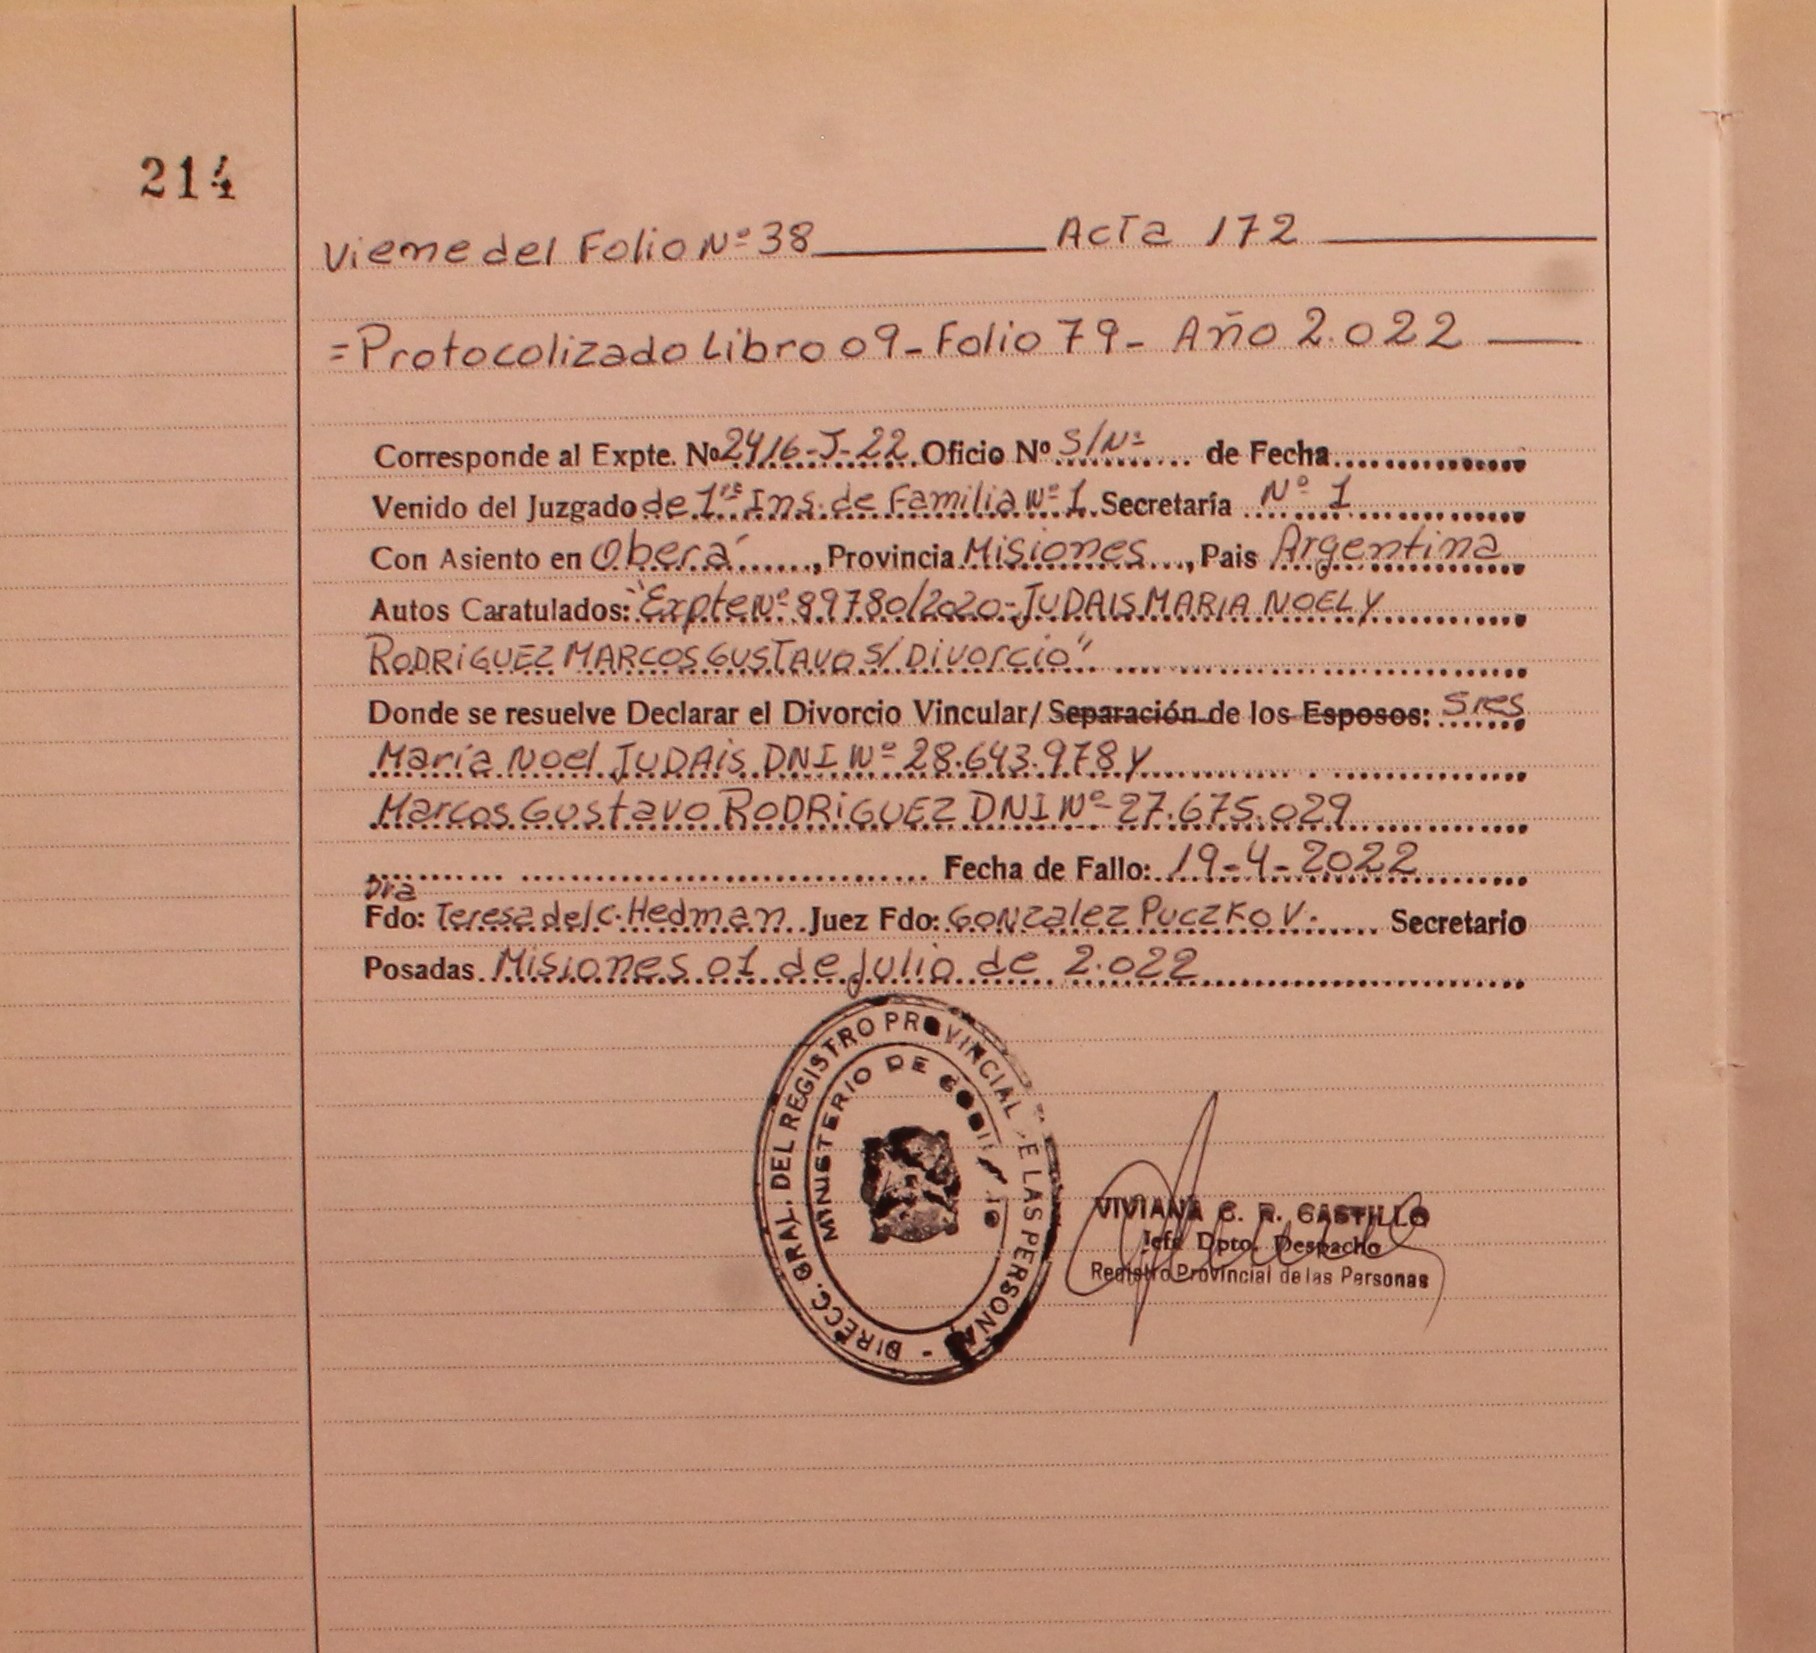 214
Viene del Folio Nº 38 Acta 172
=Protocolizado Libro 09-Folio 79- Año 2.022
Corresponde al Expte. Nº 2416-J-22 Oficio Nº S/Nº de Fecha
Venido del Juzgado de 1ra Ins. de Familia Nº 1 Secretaría Nº 1
Con Asiento en Oberá, Provincia Misiones, Pais Argentina
Autos Caratulados: "Expte Nº 89780/2020-JUDAIS MARIA NOEL Y
RODRIGUEZ MARCOS GUSTAVO S/ Divorcio"
Donde se resuelve Declarar el Divorcio Vincular/ Separación de los Esposos: Sres
María Noel JUDAIS DNI Nº 28.643.978 y
Marcos Gustavo RODRIGUEZ DNI Nº 27.675.029
Fecha de Fallo: 19-4-2022
Dra
Fdo: Teresa del C. Hedman Juez Fdo: Gonzalez Puczko V. Secretario
Posadas Misiones 01 de Julio de 2.022
DIRECC. GRAL. DEL REGISTRO PROVINCIAL DE LAS PERSONAS -
MINISTERIO DE GOBIERNO
VIVIANA C. R. CASTILLO
Jefe Dpto. Despacho
Registro Provincial de las Personas